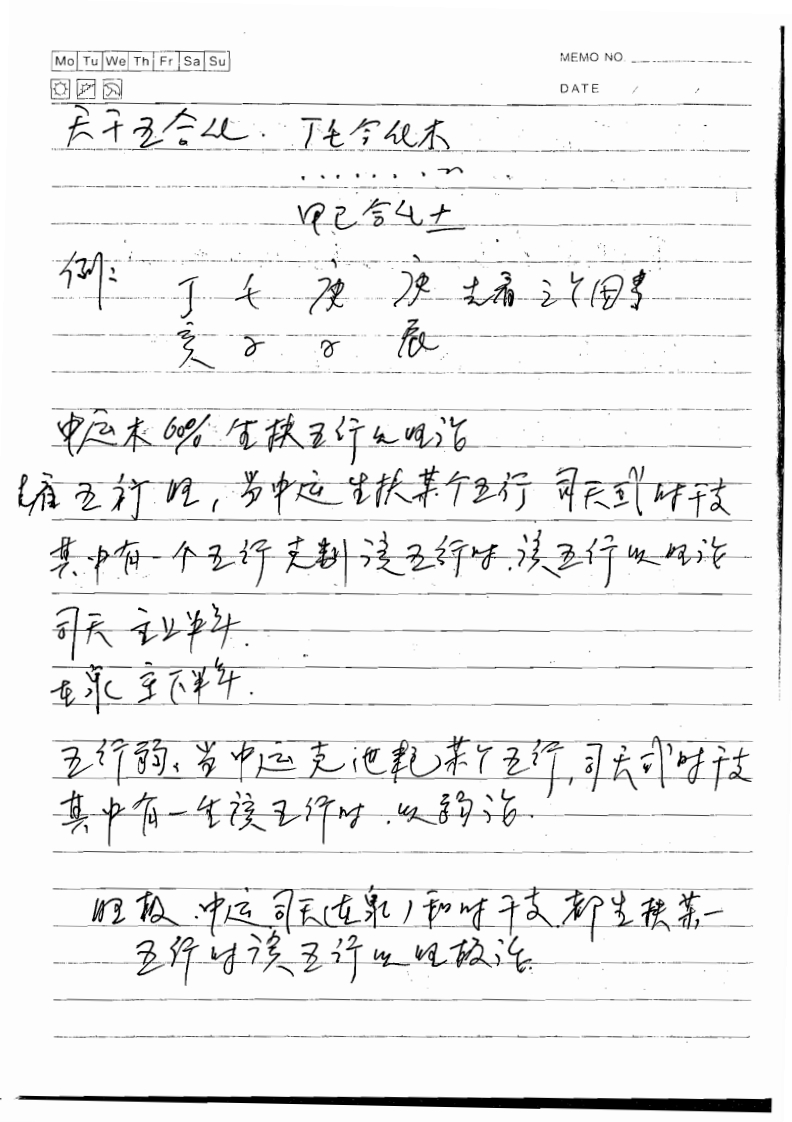 Mo Tu We Th Fr Sa Su
MEMO NO.
DATE / /
天干五合化. 丁壬合化木
.......
甲己合化土
例: 丁 壬 庚 庚 先看三个因素
亥 子 子 辰
中运木60% 生扶五行以旺论
五行旺,当中运生扶某个五行 司天或时干支
其中有一个五行克制该五行时.该五行以旺论
司天 主上半年.
在泉 主下半年.
五行弱、当中运克泄耗某个五行,司天或时干支
其中有一生该五行时.以弱论.
旺极.中运司天(在泉)和时干支.都生扶某一
五行时该五行以旺极论.